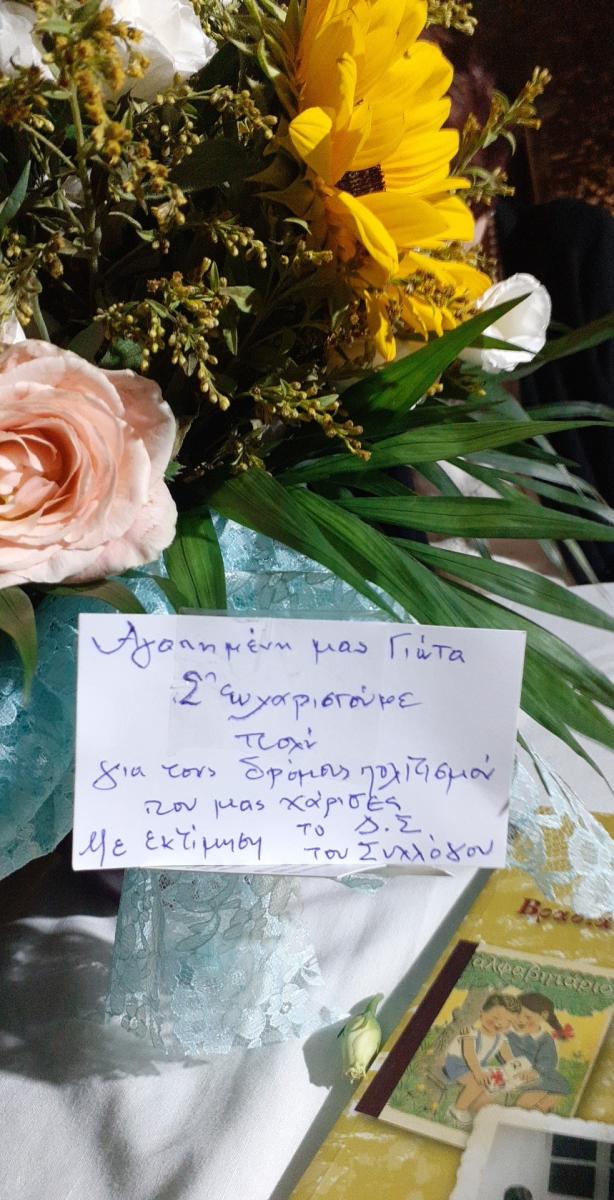 Αγαπημένη μας Γιώτα
Σ' ευχαριστούμε
πολύ
για τους δρόμους πολιτισμού
που μας χάρισες
Με εκτίμηση το Δ.Σ
του Συλλόγου
αλφαβητάριο